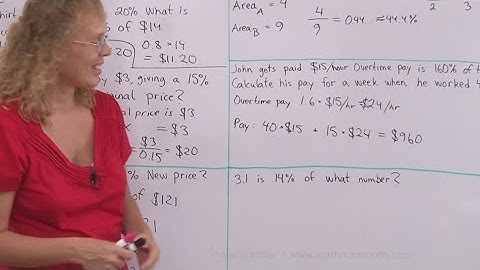 20% What is
s of $14
.20 0.8 * 14
= $11.20
$3, giving a 15%
price?
price is $3
= $3
= $3/0.15 = $20
% New price?
of $121
Area_A = 4 4/9 = 0.44... ≈ 44.4%
Area_B = 9
2 3
John gets paid $15/hour Overtime pay is 160% of t
Calculate his pay for a week when he worked 4
Overtime pay 1.6 * $15/hr = $24/hr
Pay: 40 * $15 + 15 * $24 = $960
3.1 is 14% of what number?